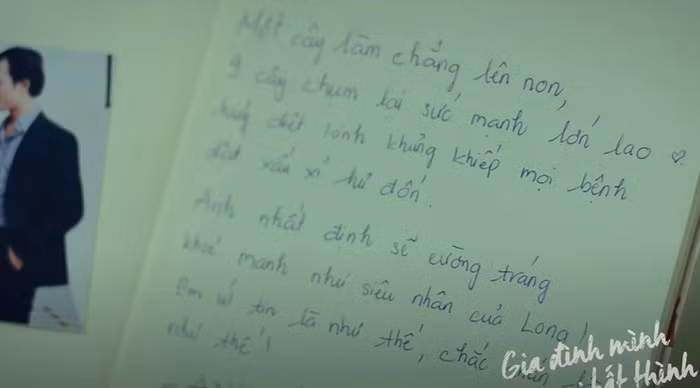 Một cây làm chẳng lên non,
9 cây chụm lại sức mạnh lớn lao ♡
diệt khủng khiếp mọi bệnh
xấu xí hư đốn.
Anh nhất định sẽ cường tráng
khoẻ mạnh như siêu nhân của Long!
Em tin là như thế, chắc
như thế!
Gia đình mình
bất thình